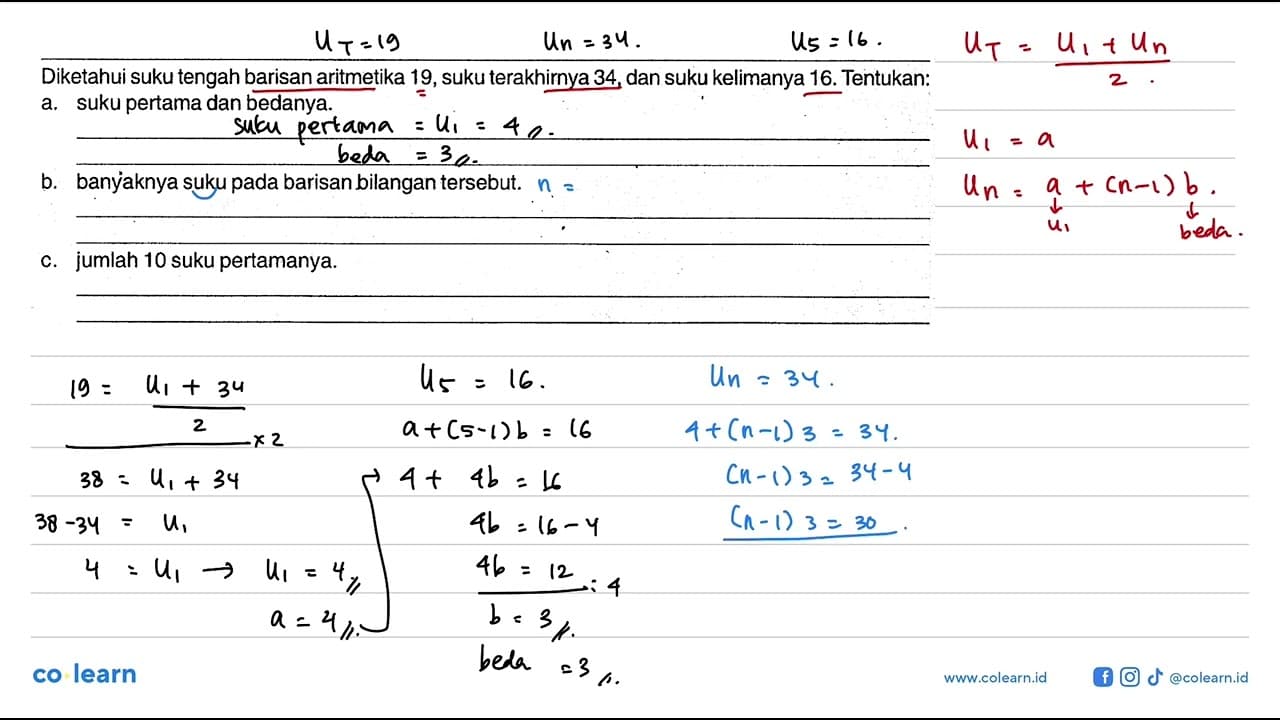 U_T = 19 Un = 34. U5 = 16.
Diketahui suku tengah barisan aritmetika 19, suku terakhirnya 34, dan suku kelimanya 16. Tentukan:
a. suku pertama dan bedanya.
suku pertama = U1 = 4 //.
beda = 3 //.
b. banyaknya suku pada barisan bilangan tersebut. n =
c. jumlah 10 suku pertamanya.
U_T = (U1 + Un) / 2 .
U1 = a
Un = a + (n-1) b .
↓ ↓
U1 beda .
19 = (U1 + 34) / 2
×2
38 = U1 + 34
38 - 34 = U1
4 = U1 → U1 = 4 //
a = 4 //.
U5 = 16 .
a + (5-1) b = 16
4 + 4b = 16
4b = 16 - 4
4b = 12
: 4
b = 3 //.
beda = 3 //.
Un = 34 .
4 + (n-1) 3 = 34 .
(n-1) 3 = 34 - 4
(n-1) 3 = 30 .
co learn
www.colearn.id
@colearn.id